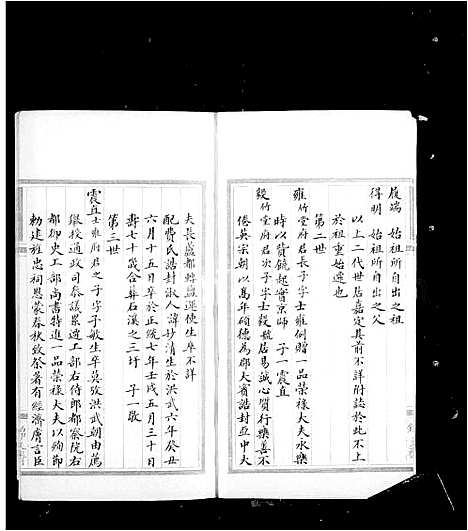 履端　始祖所自出之祖
得明　始祖所自出之父
以上二代世居嘉定其前不詳附誌於此不上
於祖重始遷也
第二世
雍竹堂府君長子字士雍例贈一品榮祿大夫永樂
時以貲饒起實京師　子一震直
緩竹堂府君次子字士緩號居易誠心質行樂善不
倦英宗朝以萬年碩德為郡大賓誥封亞中大
夫長蘆都轉鹽運使生卒不詳
配費氏誥封淑人諱妙清生於洪武六年癸丑
六月十五日卒於正統七年壬戌五月三十日
壽七十歲合葬石溪之三圩　子一敬
第三世
震直士雍府君之子字子敏生卒莫攷洪武朝由薦
徵授通政司參議累遷工部右侍郎都察院右
都御史工部尚書特進一品榮祿大夫以殉節
勅建旌忠祠恩蒙春秋致祭著有經濟膚言臣